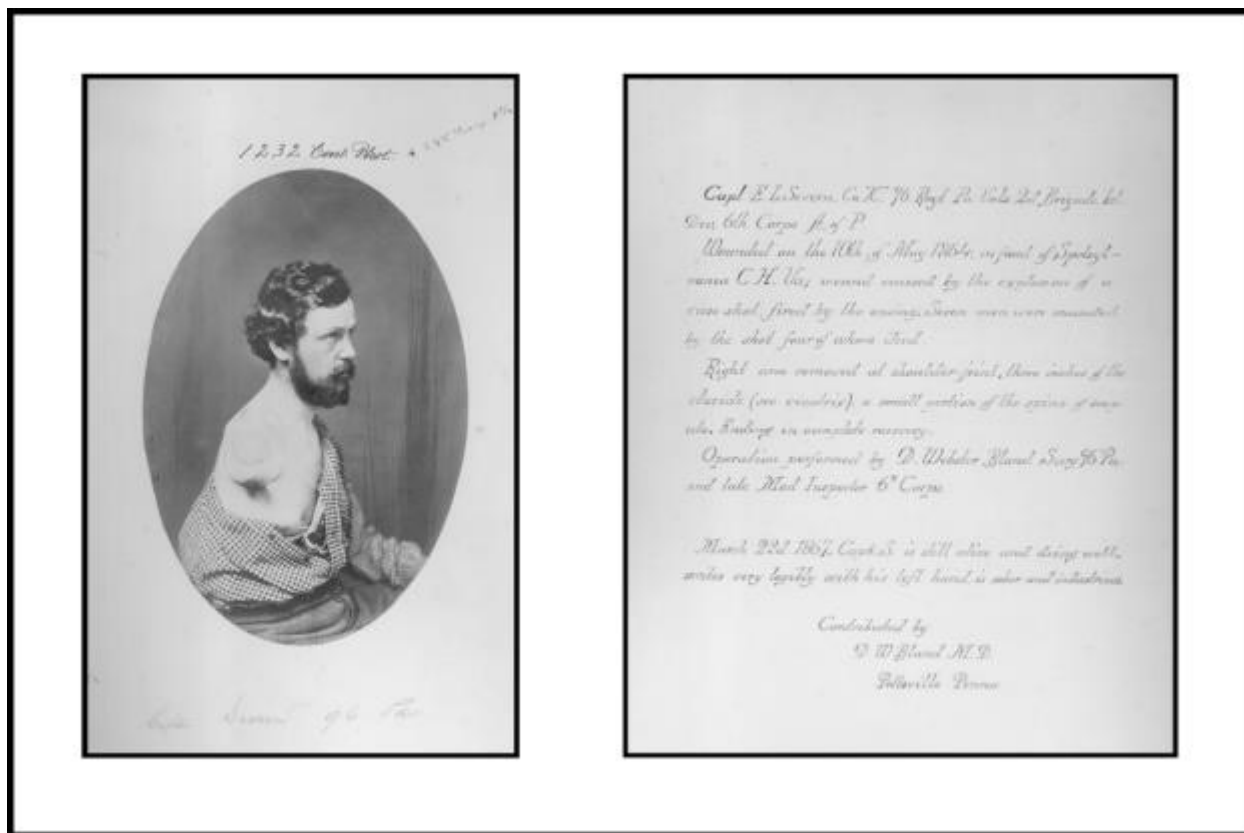 1232 Cont. Phot.
Capt E. L. Severn, Co K. 96 Regt Pa Vols 2d Brigade 1st
Divn 6th Corps A. of P.
Wounded on the 10th of May 1864, in front of Spotsyl-
vania C. H. Va; wound caused by the explosion of a
case shot, fired by the enemy. Seven men were wounded
by the shot four of whom died.
Right arm removed at shoulder joint, three inches of the
clavicle (see cicatrix) a small portion of the spine of
Ending in complete recovery.
Operation performed by D. Webster Bland Surg 96 Pa.
and late Med Inspector 6th Corps
March 22d 1867. Capt. S. is still alive and doing well.
writes very legibly with his left hand, is sober and industrious
Contributed by
D W Bland M. D.
Pottsville Penna
Severn 96 Pa